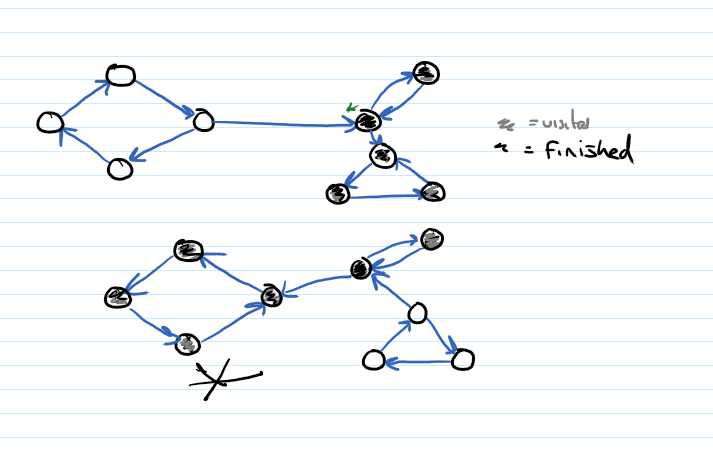 = visited
= finished